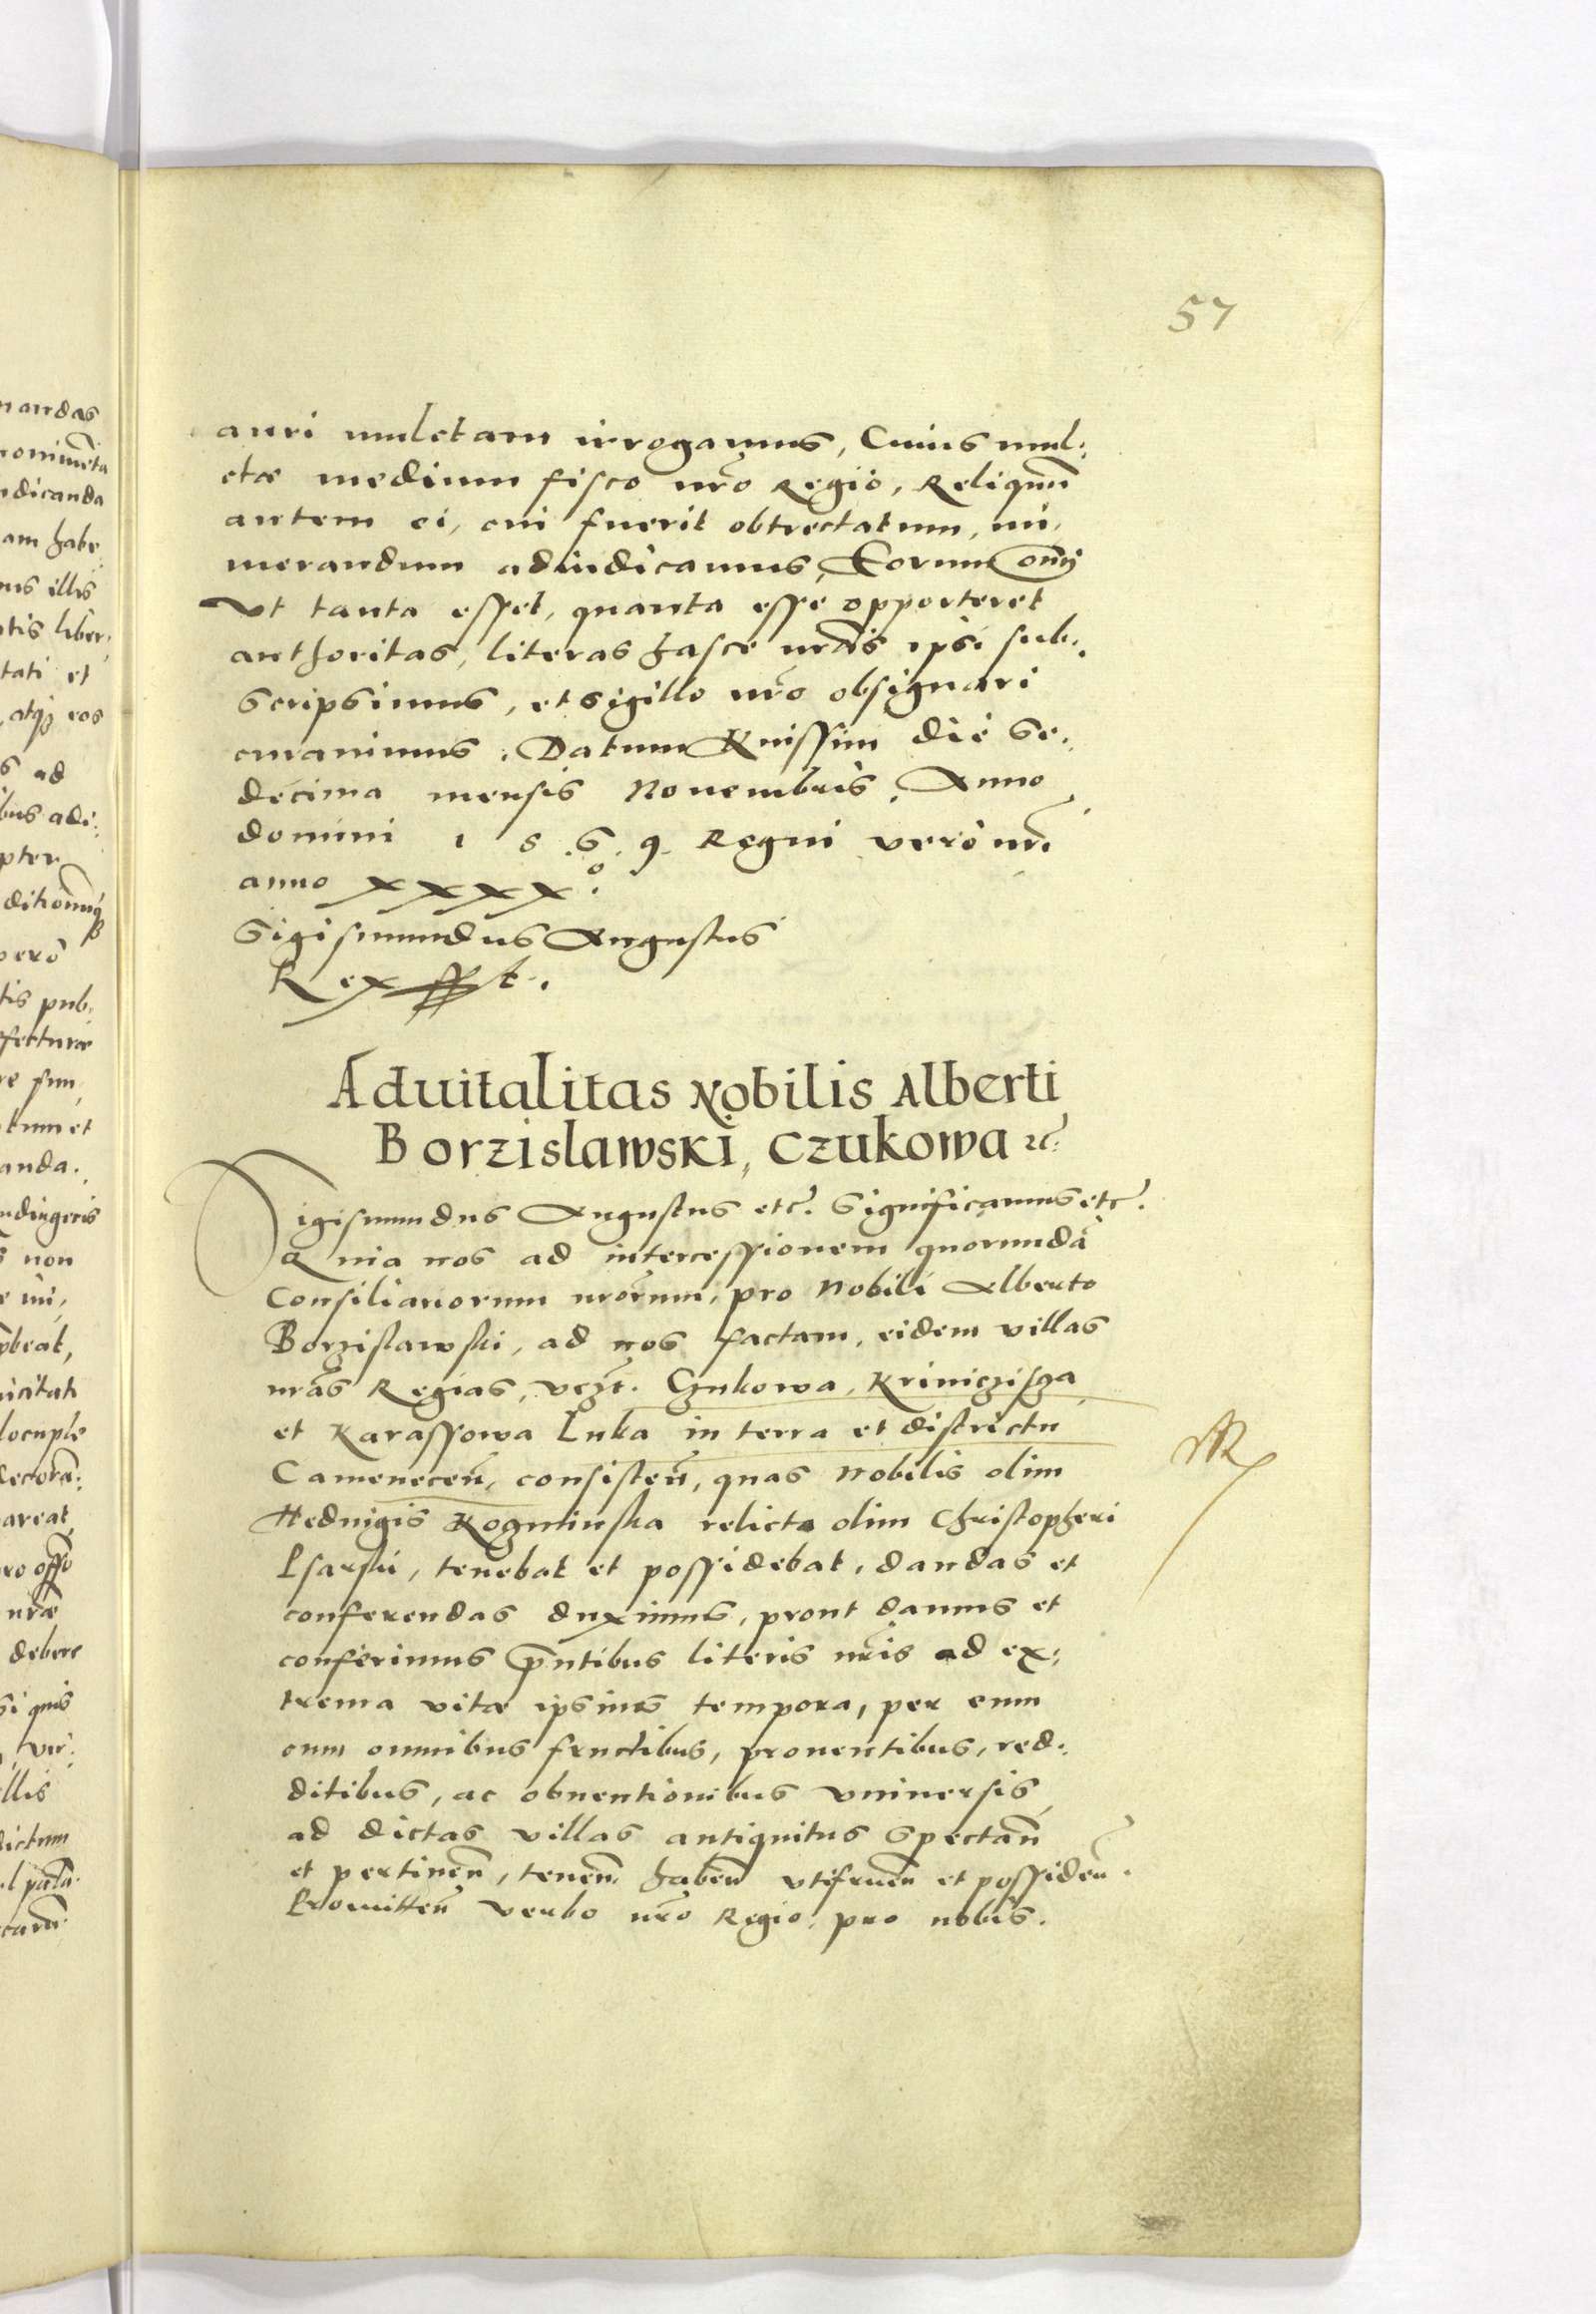 57
auri mulctam irrogamus, Cuius mul:
ctæ medium fisco nr̃o Regio, Reliquũ
autem ei, cui fuerit obtrectatum, nu,
merandum adiudicamus, Eorum om̃
Vt tanta esset, quanta esse opporteret
authoritas, literas hasce nrãs ipsi sub:
scripsimus, et sigillo nr̃o obsignari
curauimus. Datum Knissim die Se:
decima mensis Nouembris, Anno
domini 1 5 6 9. Regni vero nr̃i
anno xxxxº.
Sigismundus Augustus
Rex sst.
Aduitalitas Nobilis Alberti
Borzislawski, Czukowa ꝛc̃:
Sigismundus Augustus etc̃. Significamus etc̃.
Quia nos ad intercessionem quorundã
Consiliariorum nrõrum, pro Nobili Alberto
Borzislawski, ad nos factam, eidem villas
nrãs Regias, vczt. Czukowa, Kriniczisza
et Karassowa Luka in terra et districtu
Camenecen̄, consisten̄, quas Nobilis olim
Heduigis Rogminska relicta olim Christopheri
Lsarski, tenebat et possidebat, dandas et
conferendas duximus, prout damus et
conferimus pñtibus literis nr̃is ad ex:
trema vitæ ipsius tempora, per eum
cum omnibus fructibus, prouentibus, red:
ditibus, ac obuentionibus vniuersis,
ad dictas villas antiquitus spectan̄
et pertinen̄, tenen̄ haben̄ vtifruen̄ et possiden̄.
Promitten̄ verbo nr̃o Regio, pro nobis.
MR